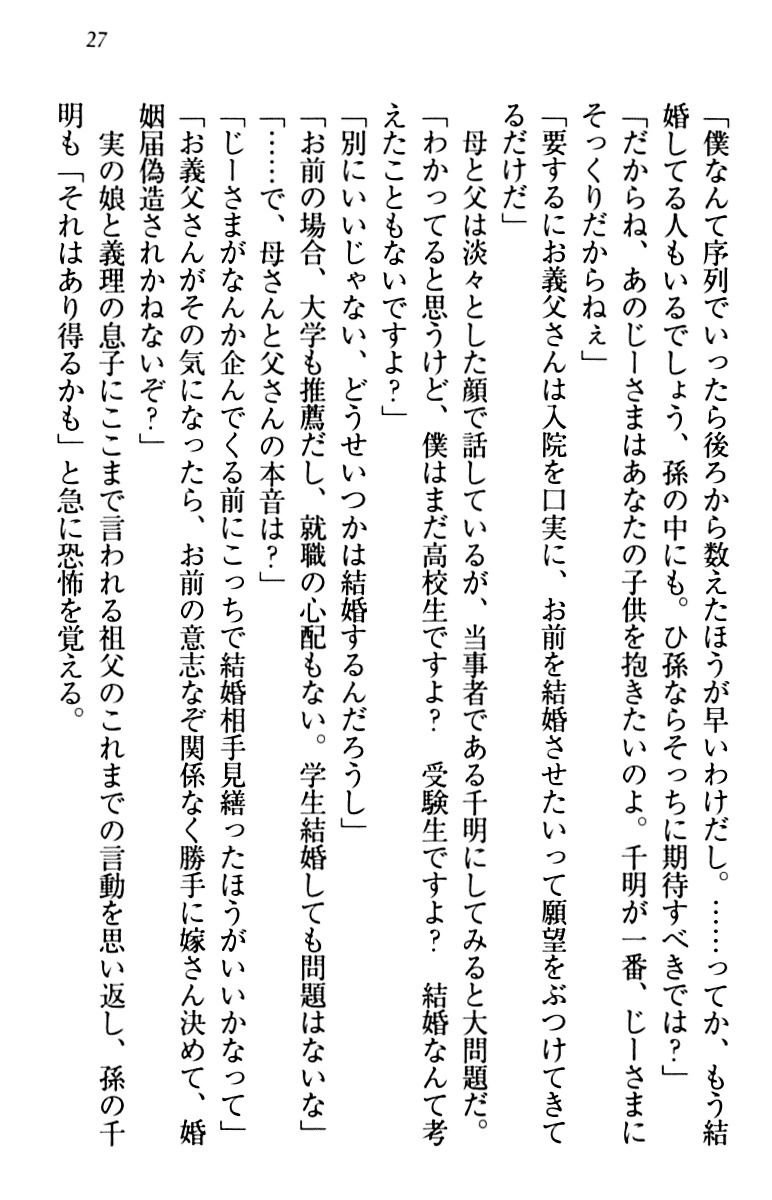 27
「僕なんて序列でいったら後ろから数えたほうが早いわけだし。……ってか、もう結
婚してる人もいるでしょう、孫の中にも。ひ孫ならそっちに期待すべきでは？」
「だからね、あのじーさまはあなたの子供を抱きたいのよ。千明が一番、じーさまに
そっくりだからねぇ」
「要するにお義父さんは入院を口実に、お前を結婚させたいって願望をぶつけてきて
るだけだ」
　母と父は淡々とした顔で話しているが、当事者である千明にしてみると大問題だ。
「わかってると思うけど、僕はまだ高校生ですよ？　受験生ですよ？　結婚なんて考
えたこともないですよ？」
「別にいいじゃない、どうせいつかは結婚するんだろうし」
「お前の場合、大学も推薦だし、就職の心配もない。学生結婚しても問題はないな」
「……で、母さんと父さんの本音は？」
「じーさまがなんか企んでくる前にこっちで結婚相手見繕ったほうがいいかなって」
「お義父さんがその気になったら、お前の意志なぞ関係なく勝手に嫁さん決めて、婚
姻届偽造されかねないぞ？」
　実の娘と義理の息子にここまで言われる祖父のこれまでの言動を思い返し、孫の千
明も「それはあり得るかも」と急に恐怖を覚える。